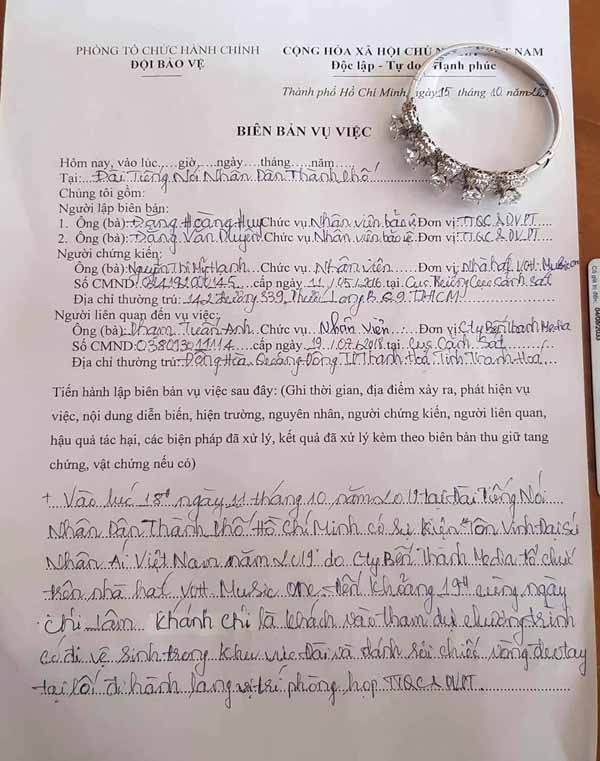 PHÒNG TỔ CHỨC HÀNH CHÍNH
ĐỘI BẢO VỆ
CỘNG HÒA XÃ HỘI CHỦ NGHĨA VIỆT NAM
Độc lập - Tự do - Hạnh phúc
Thành phố Hồ Chí Minh, ngày 15 tháng 10 năm
BIÊN BẢN VỤ VIỆC
Hôm nay, vào lúc.....giờ.....ngày.....tháng.....năm.....
Tại: Đài Tiếng Nói Nhân Dân Thành Phố
Chúng tôi gồm:
Người lập biên bản:
1. Ông (bà): Đặng Hoàng Huy Chức vụ Nhân viên bảo vệ Đơn vị TTQC & DVPT
2. Ông (bà): Đặng Văn Chức vụ: Nhân viên bảo vệ Đơn vị: TTQC & DVPT
Người chứng kiến:
Ông (bà): Nguyễn Thị Mỹ Hạnh Chức vụ: Nhân viên Đơn vị: Nhà hát VOH Music one
Số CMND: cấp ngày 11/05/2016 tại Cục Cảnh sát
Địa chỉ thường trú: 142 Đường 339, Phước Long B, Q9, TPHCM
Người liên quan đến vụ việc:
Ông (bà): Phạm Tuấn Anh Chức vụ: Nhân Viên Đơn vị: Cty Bến Thành Media
Số CMND: cấp ngày 19/07/2018 tại Cục Cảnh Sát
Địa chỉ thường trú: Đông Hòa Quảng Đông TP Thanh Hoá, Tỉnh Thanh Hoá
Tiến hành lập biên bản vụ việc sau đây: (Ghi thời gian, địa điểm xảy ra, phát hiện vụ
việc, nội dung diễn biến, hiện trường, nguyên nhân, người chứng kiến, người liên quan,
hậu quả tác hại, các biện pháp đã xử lý, kết quả đã xử lý kèm theo biên bản thu giữ tang
chứng, vật chứng nếu có)
+ Vào lúc 18h ngày 11 tháng 10 năm 2019 tại Đài Tiếng Nói
Nhân Dân Thành Phố Hồ Chí Minh có sự kiện "Tôn Vinh Đại Sứ
Nhân Ái Việt Nam năm 2019" do Cty Bến Thành Media tổ chức
trên nhà hát VOH Music One. Đến khoảng 19h cùng ngày
chị Lâm Khánh Chi là khách vào tham dự chương trình
có đi vệ sinh trong khu vực Đài và đánh rơi chiếc vòng đeo tay
tại lối đi hành lang vị trí phòng họp TTQC & DVPT.